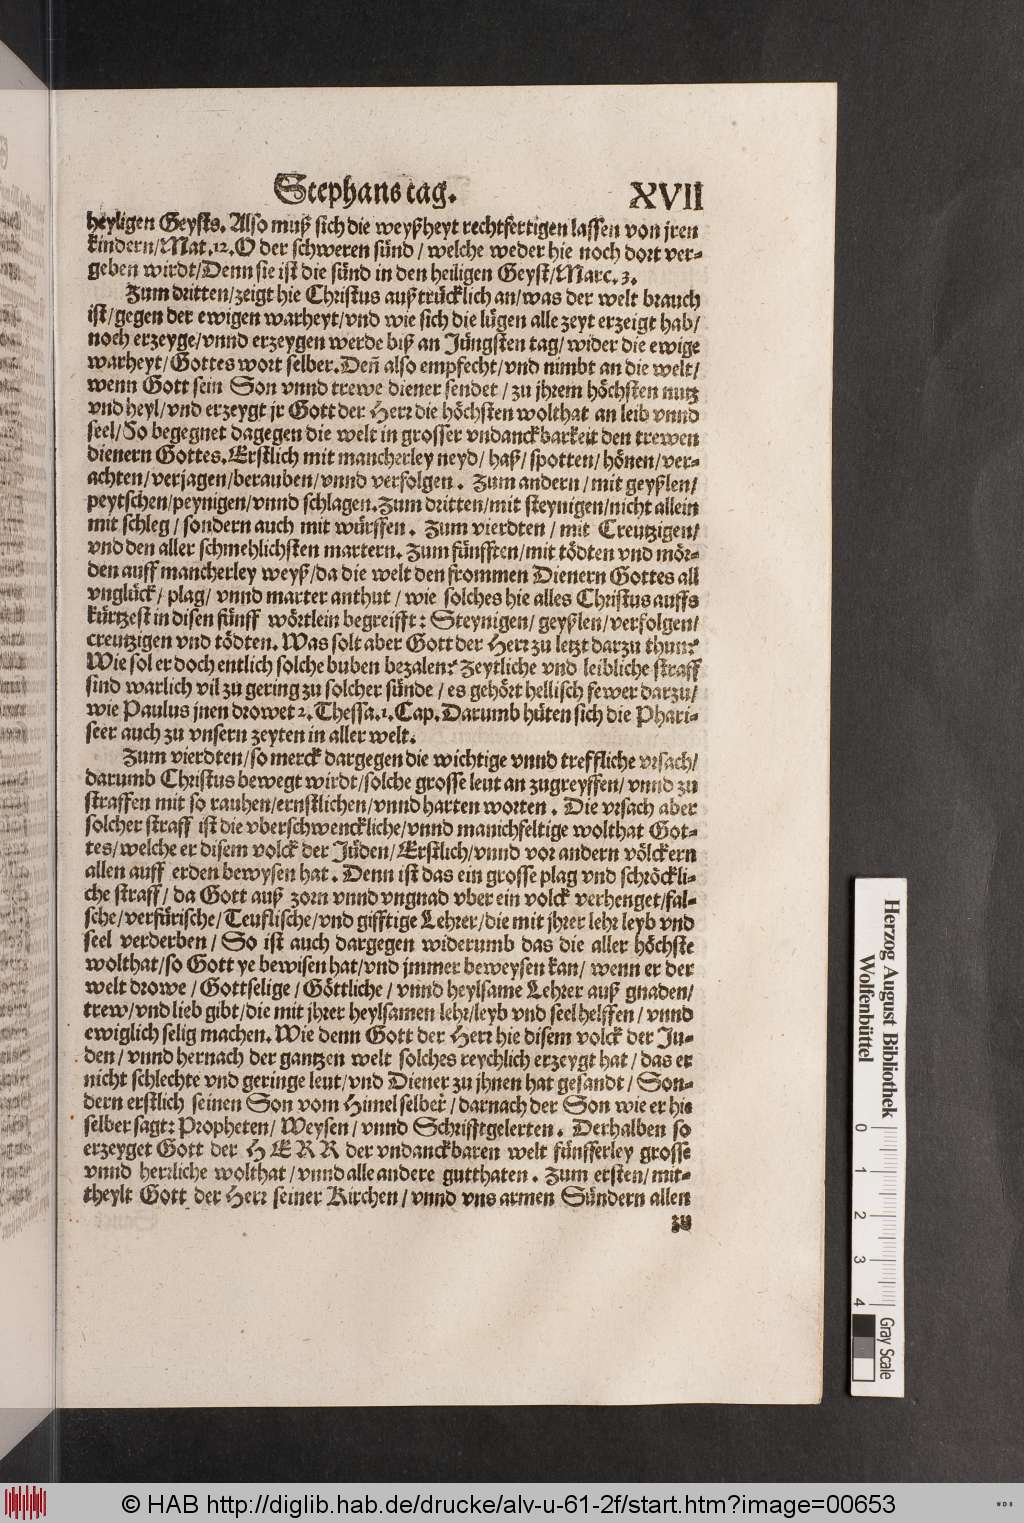 Stephans tag. XVII
heyligen Geysts. Also muß sich die weyßheyt rechtfertigen lassen von jren
kindern/Mat.12.O der schweren sünd / welche weder hie noch dort ver-
geben wirdt/Denn sie ist die sünd in den heiligen Geyst/Marc.3.
Zum dritten/zeigt hie Christus außtrücklich an/was der welt brauch
ist/gegen der ewigen warheyt/vnd wie sich die lügen alle zeyt erzeigt hab/
noch erzeyge/vnnd erzeygen werde biß an Jüngsten tag/wider die ewige
warheyt/Gottes wort selber.Deñ also empfecht/vnd nimbt an die welt/
wenn Gott sein Son vnnd trewe diener sendet / zu jhrem höchsten nutz
vnd heyl/vnd erzeygt jr Gott der Herr die höchsten wolthat an leib vnnd
seel/So begegnet dagegen die welt in grosser vndanckbarkeit den trewen
dienern Gottes.Erstlich mit mancherley neyd/haß/spotten/hönen/ver-
achten/verjagen/berauben/vnnd verfolgen. Zum andern/mit geyßlen/
peytschen/peynigen/vnnd schlagen.Zum dritten/mit steynigen/nicht allein
mit schleg / sondern auch mit würffen. Zum vierdten / mit Creutzigen/
vnd den aller schmehlichsten martern. Zum fünfften/mit tödten vnd mör-
den auff mancherley weyß/da die welt den frommen Dienern Gottes all
vnglück / plag/ vnnd marter anthut / wie solches hie alles Christus auffs
kürtzest in disen fünff wörtlein begreifft: Steynigen/ geyßlen/verfolgen/
creutzigen vnd tödten. Was solt aber Gott der Herr zu letzt darzu thun?
Wie sol er doch entlich solche buben bezalen? Zeytliche vnd leibliche straff
sind warlich vil zu gering zu solcher sünde / es gehört hellisch fewer darzu/
wie Paulus jnen drowet 2.Thessa.1.Cap.Darumb hüten sich die Phari-
seer auch zu vnsern zeyten in aller welt.
Zum vierdten/so merck dargegen die wichtige vnnd treffliche vrsach/
darumb Christus bewegt wirdt/solche grosse leut an zugreyffen/vnnd zu
straffen mit so rauhen/ernstlichen/vnnd harten worten. Die vrsach aber
solcher straff ist die vberschwenckliche/vnnd manichfeltige wolthat Got-
tes/welche er disem volck der Jüden/Erstlich/vnnd vor andern völckern
allen auff erden bewysen hat. Denn ist das ein grosse plag vnd schröckli-
che straff/ da Gott auß zorn vnnd vngnad vber ein volck verhenget/fal-
sche/verfürische/Teuflische/vnd gifftige Lehrer/die mit jhrer lehr leyb vnd
seel verderben/ So ist auch dargegen widerumb das die aller höchste
wolthat/so Gott ye bewisen hat/vnd jmmer beweysen kan/ wenn er der
welt drowe / Gottselige / Göttliche / vnnd heylsame Lehrer auß gnaden/
trew/vnd lieb gibt/die mit jhrer heylsamen lehr/leyb vnd seel helffen / vnnd
ewiglich selig machen. Wie denn Gott der Herr hie disem volck der Ju-
den/ vnnd hernach der gantzen welt solches reychlich erzeygt hat / das er
nicht schlechte vnd geringe leut/vnd Diener zu jhnen hat gesandt / Son-
dern erstlich seinen Son vom Himel selber / darnach der Son wie er hie
selber sagt: Propheten/ Weysen/ vnnd Schrifftgelerten. Derhalben so
erzeyget Gott der HERR der vndanckbaren welt fünfferley grosse
vnnd herrliche wolthat / vnnd alle andere gutthaten. Zum ersten/ mit-
theylt Gott der Herr seiner Kirchen / vnnd vns armen Sündern allen
zu
Herzog August Bibliothek
Wolfenbüttel
0 1 2 3 4
Gray Scale
© HAB http://diglib.hab.de/drucke/alv-u-61-2f/start.htm?image=00653